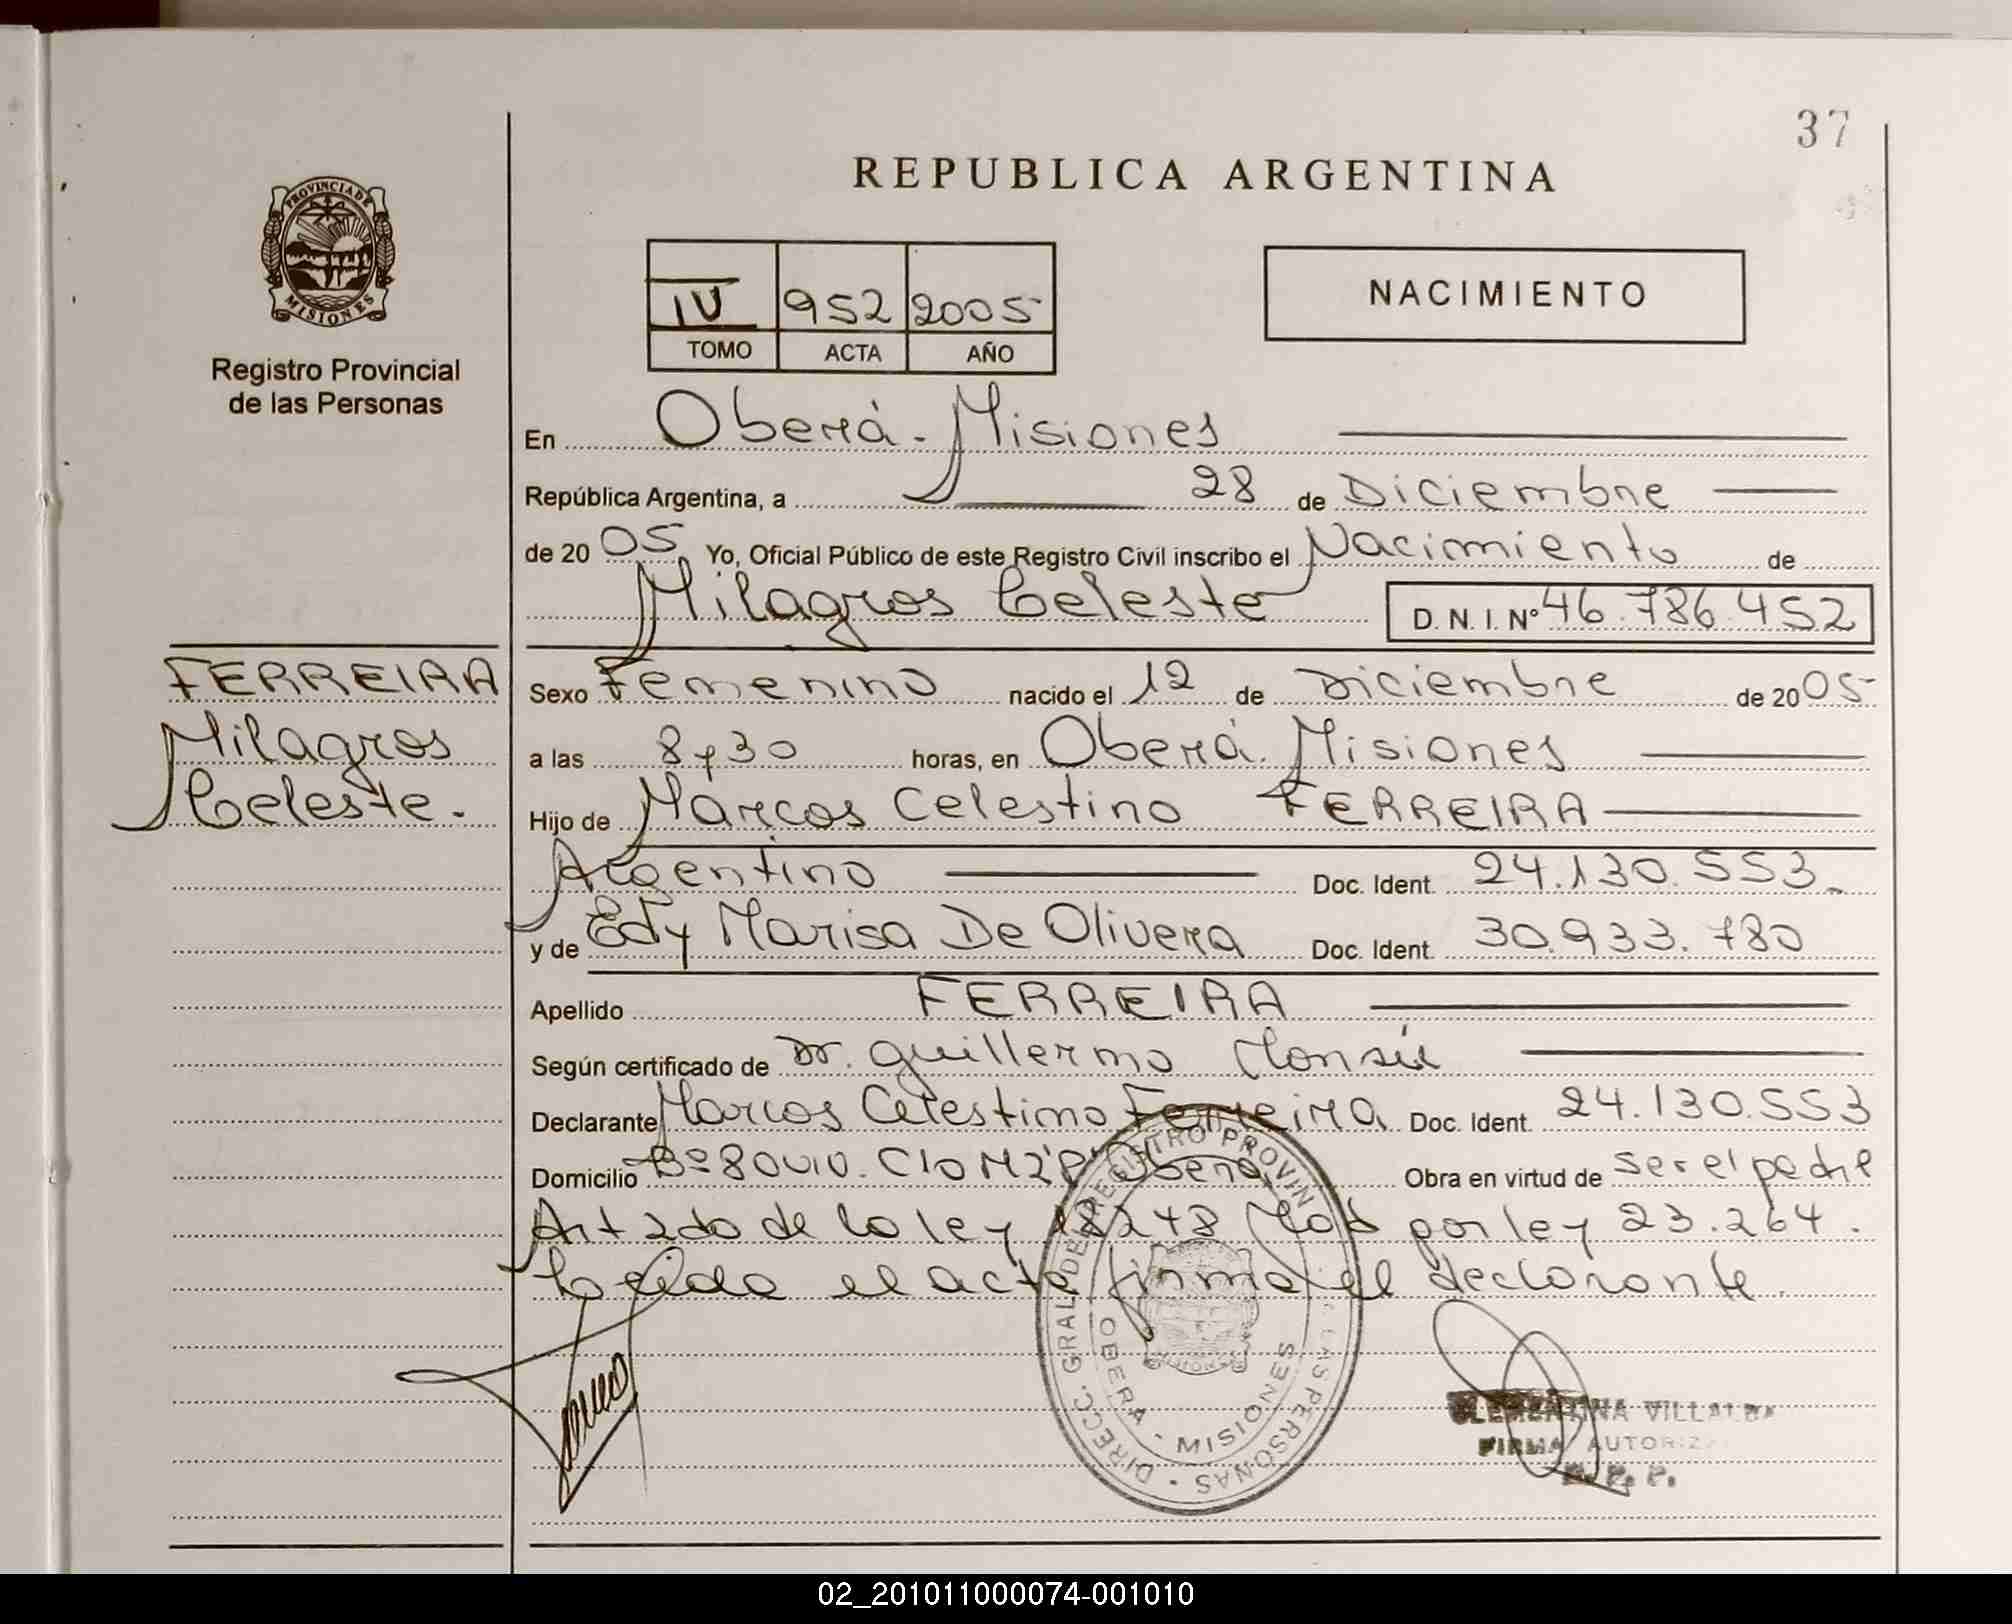 37
REPUBLICA ARGENTINA
PROVINCIA DE
MISIONES
IV 952 2005
TOMO ACTA AÑO
NACIMIENTO
Registro Provincial
de las Personas
En Oberá - Misiones
República Argentina, a 28 de Diciembre
de 2005 Yo, Oficial Público de este Registro Civil inscribo el Nacimiento de
Milagros Celeste D.N.I. Nº 46.786.452
FERREIRA
Milagros
Celeste.
Sexo Femenino nacido el 12 de Diciembre de 2005
a las 8 y 30 horas, en Oberá. Misiones
Hijo de Marcos Celestino FERREIRA
Argentino Doc. Ident. 24.130.553.
y de Edy Marisa De Olivera Doc. Ident. 30.933.780
Apellido FERREIRA
Según certificado de Dr. Guillermo
Declarante Marcos Celestino Ferreira Doc. Ident. 24.130.553
Domicilio Oberá Obra en virtud de ser el padre
Art 2do de la ley 18248 Mod por ley 23.264.
Leida el acta firma el declarante.
DIRECC. GRAL. DEL REGISTRO PROVIN LAS PERSONAS
OBERA - MISIONES
CLEMENTINA VILLALBA
FIRMA AUTORIZA
R. P. P.
02_201011000074-001010